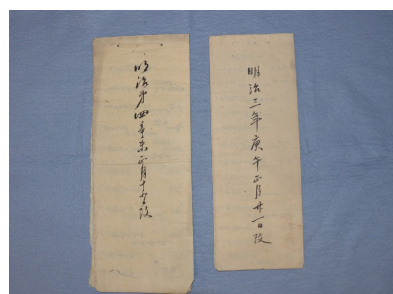 明治三年庚午正月廿一日改
明治第四辛未正月十五日改